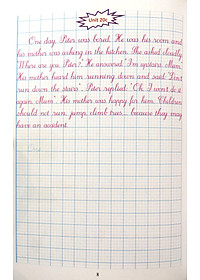 Unit 20c
One day, Peter was bored. He was his room and
his mother was asking in the kitchen. She asked loudly
"Where are you Peter?" He answered "I'm upstairs, Mum.
His mother heard him running down and said "Don't
run down the stairs". Peter replied: "Oh. I won't do it
again, Mum". His mother was happy for him. Children
should not run, jump, climb tree... because they may
have an accident.
One
8